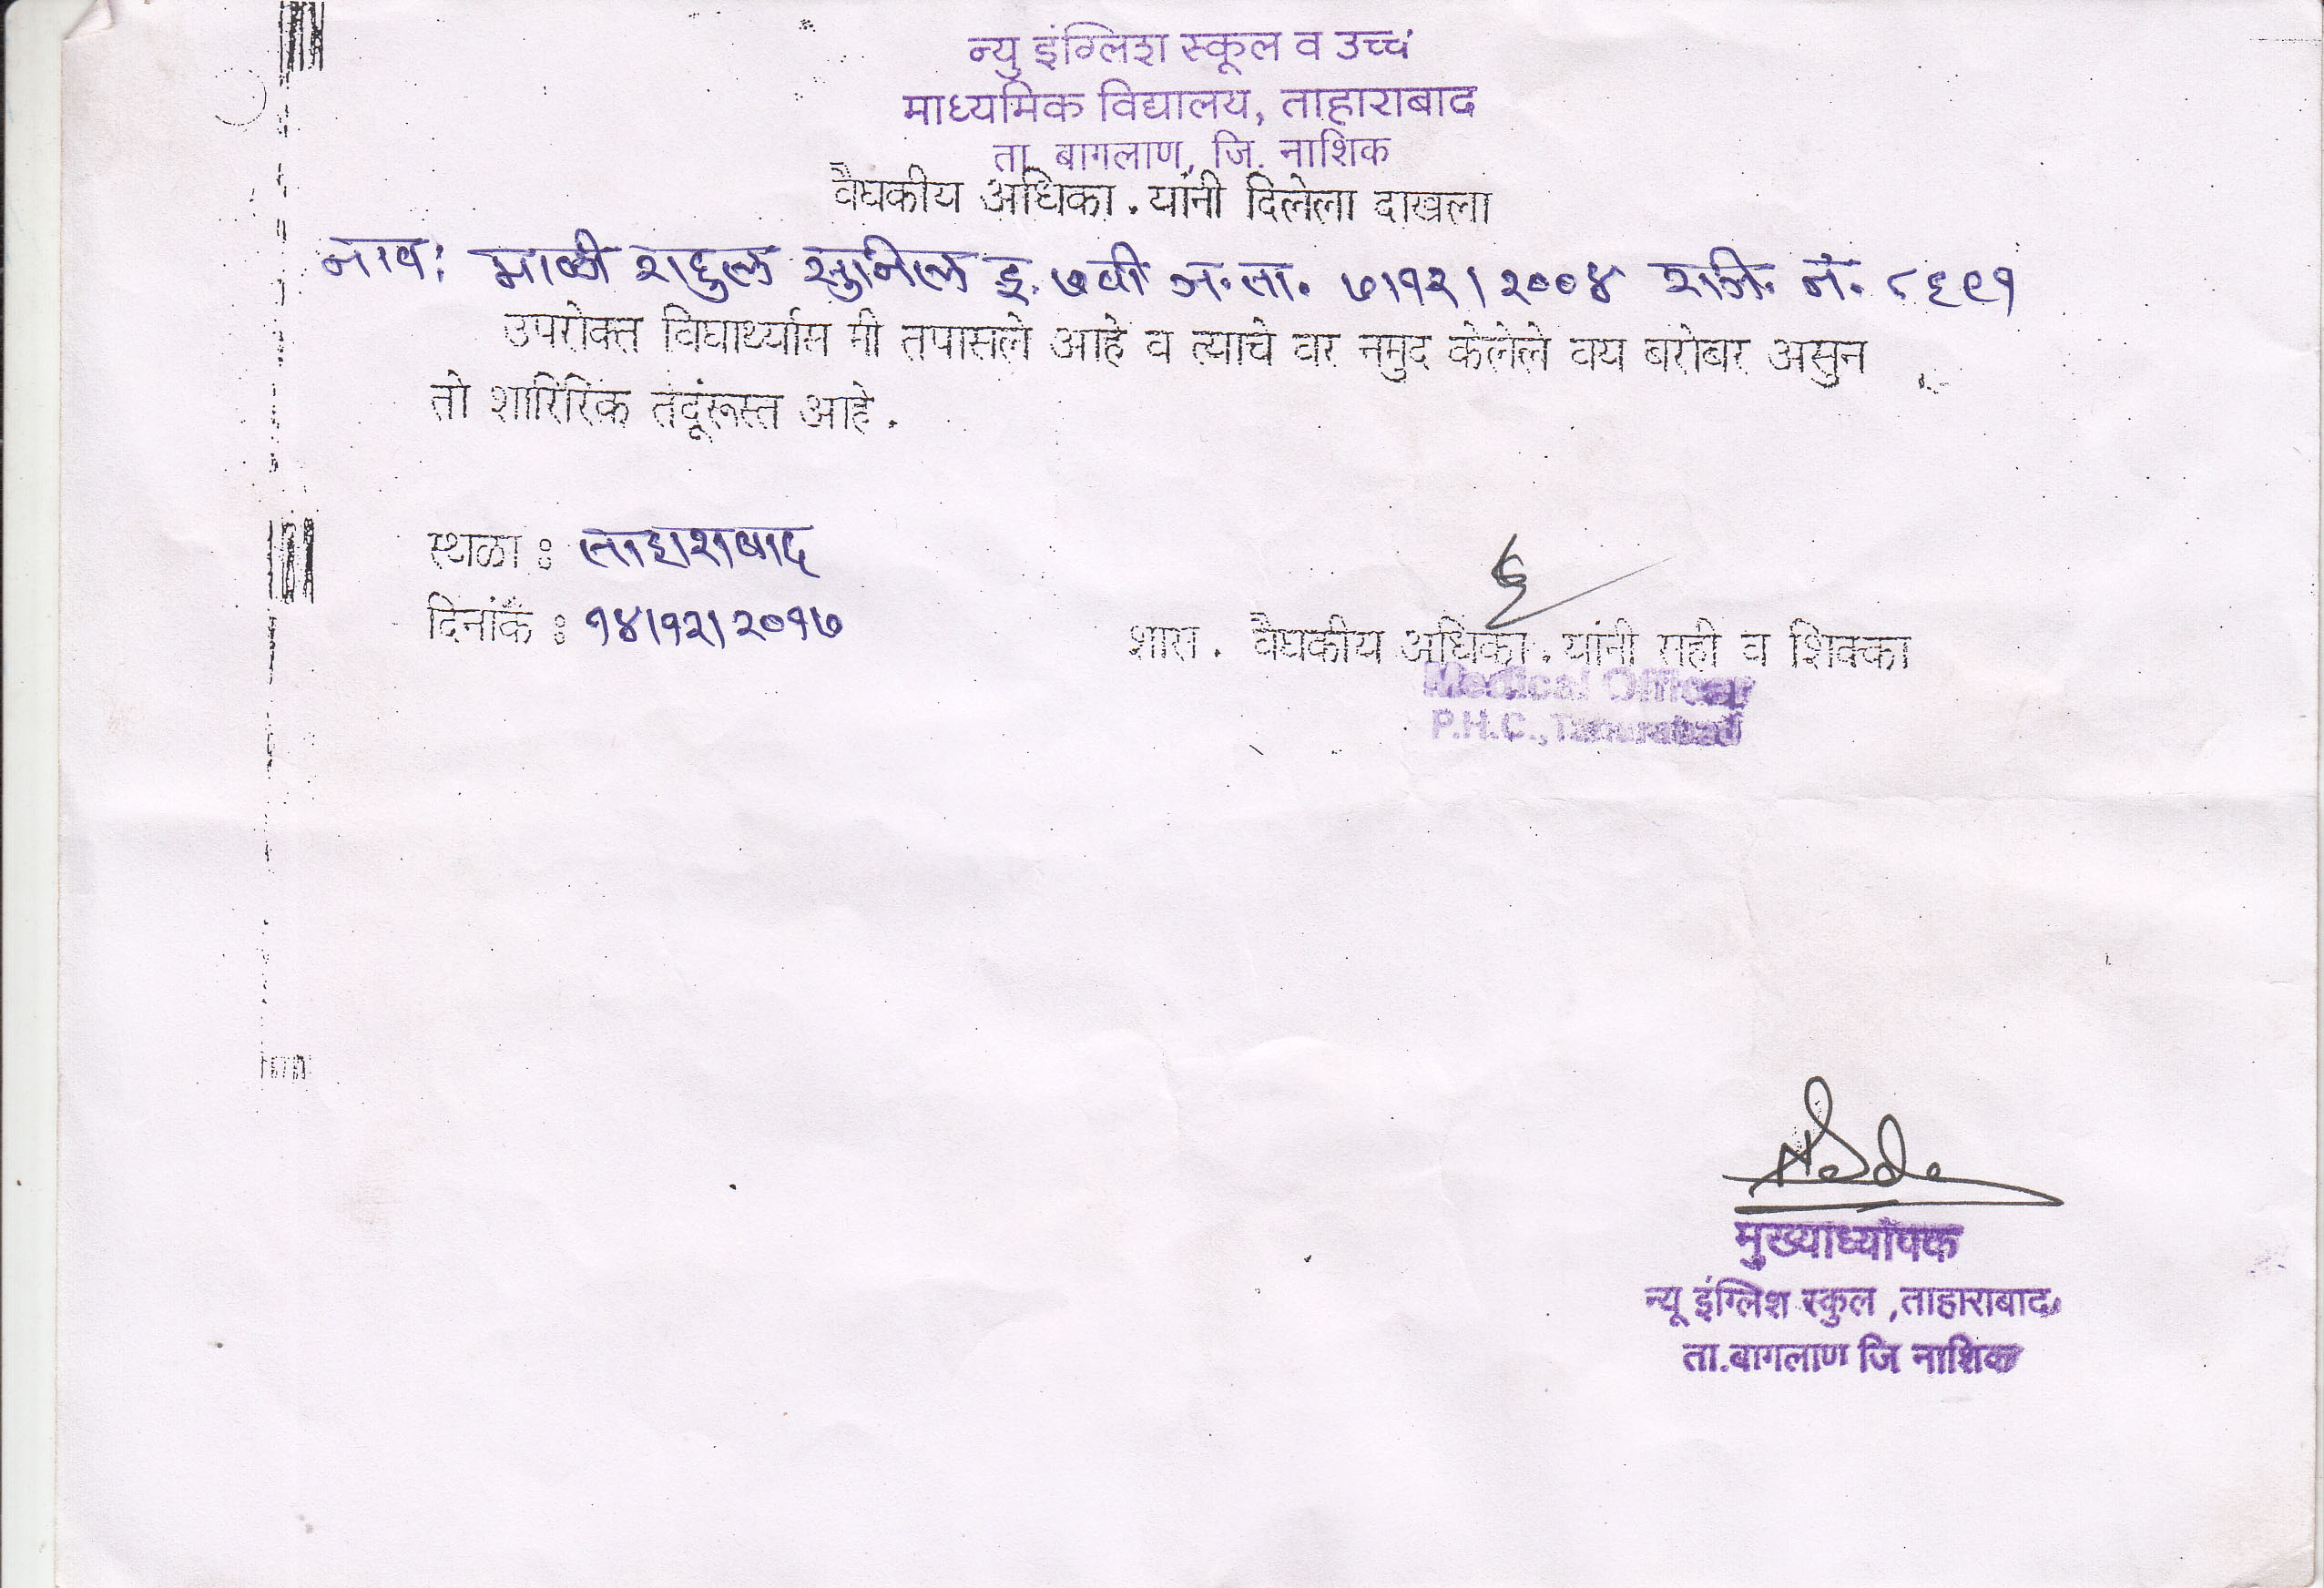 न्यु इंग्लिश स्कूल व उच्च
माध्यमिक विद्यालय, ताहाराबाद
ता. बागलाण, जि. नाशिक
वैघकीय अधिका. यांनी दिलेला दाखला
नाव: माळी राहुल सुनिल इ. ७वी ज.ता. ७।१२।२००४ राजि. नं. ८६९१
उपरोक्त विघार्थ्यास मी तपासले आहे व त्याचे वर नमुद केलेले वय बरोबर असुन
तो शारिरिक तदूंरूस्त आहे.
स्थळा : ताहाराबाद
दिनांक : १४।१२।२०१७
शास. वैघकीय अधिका. यांनी सही व शिक्का
Medical Officer
P.H.C., Taharabad
मुख्याध्यापक
न्यू इंग्लिश स्कुल ,ताहाराबाद
ता.बागलाण जि नाशिक